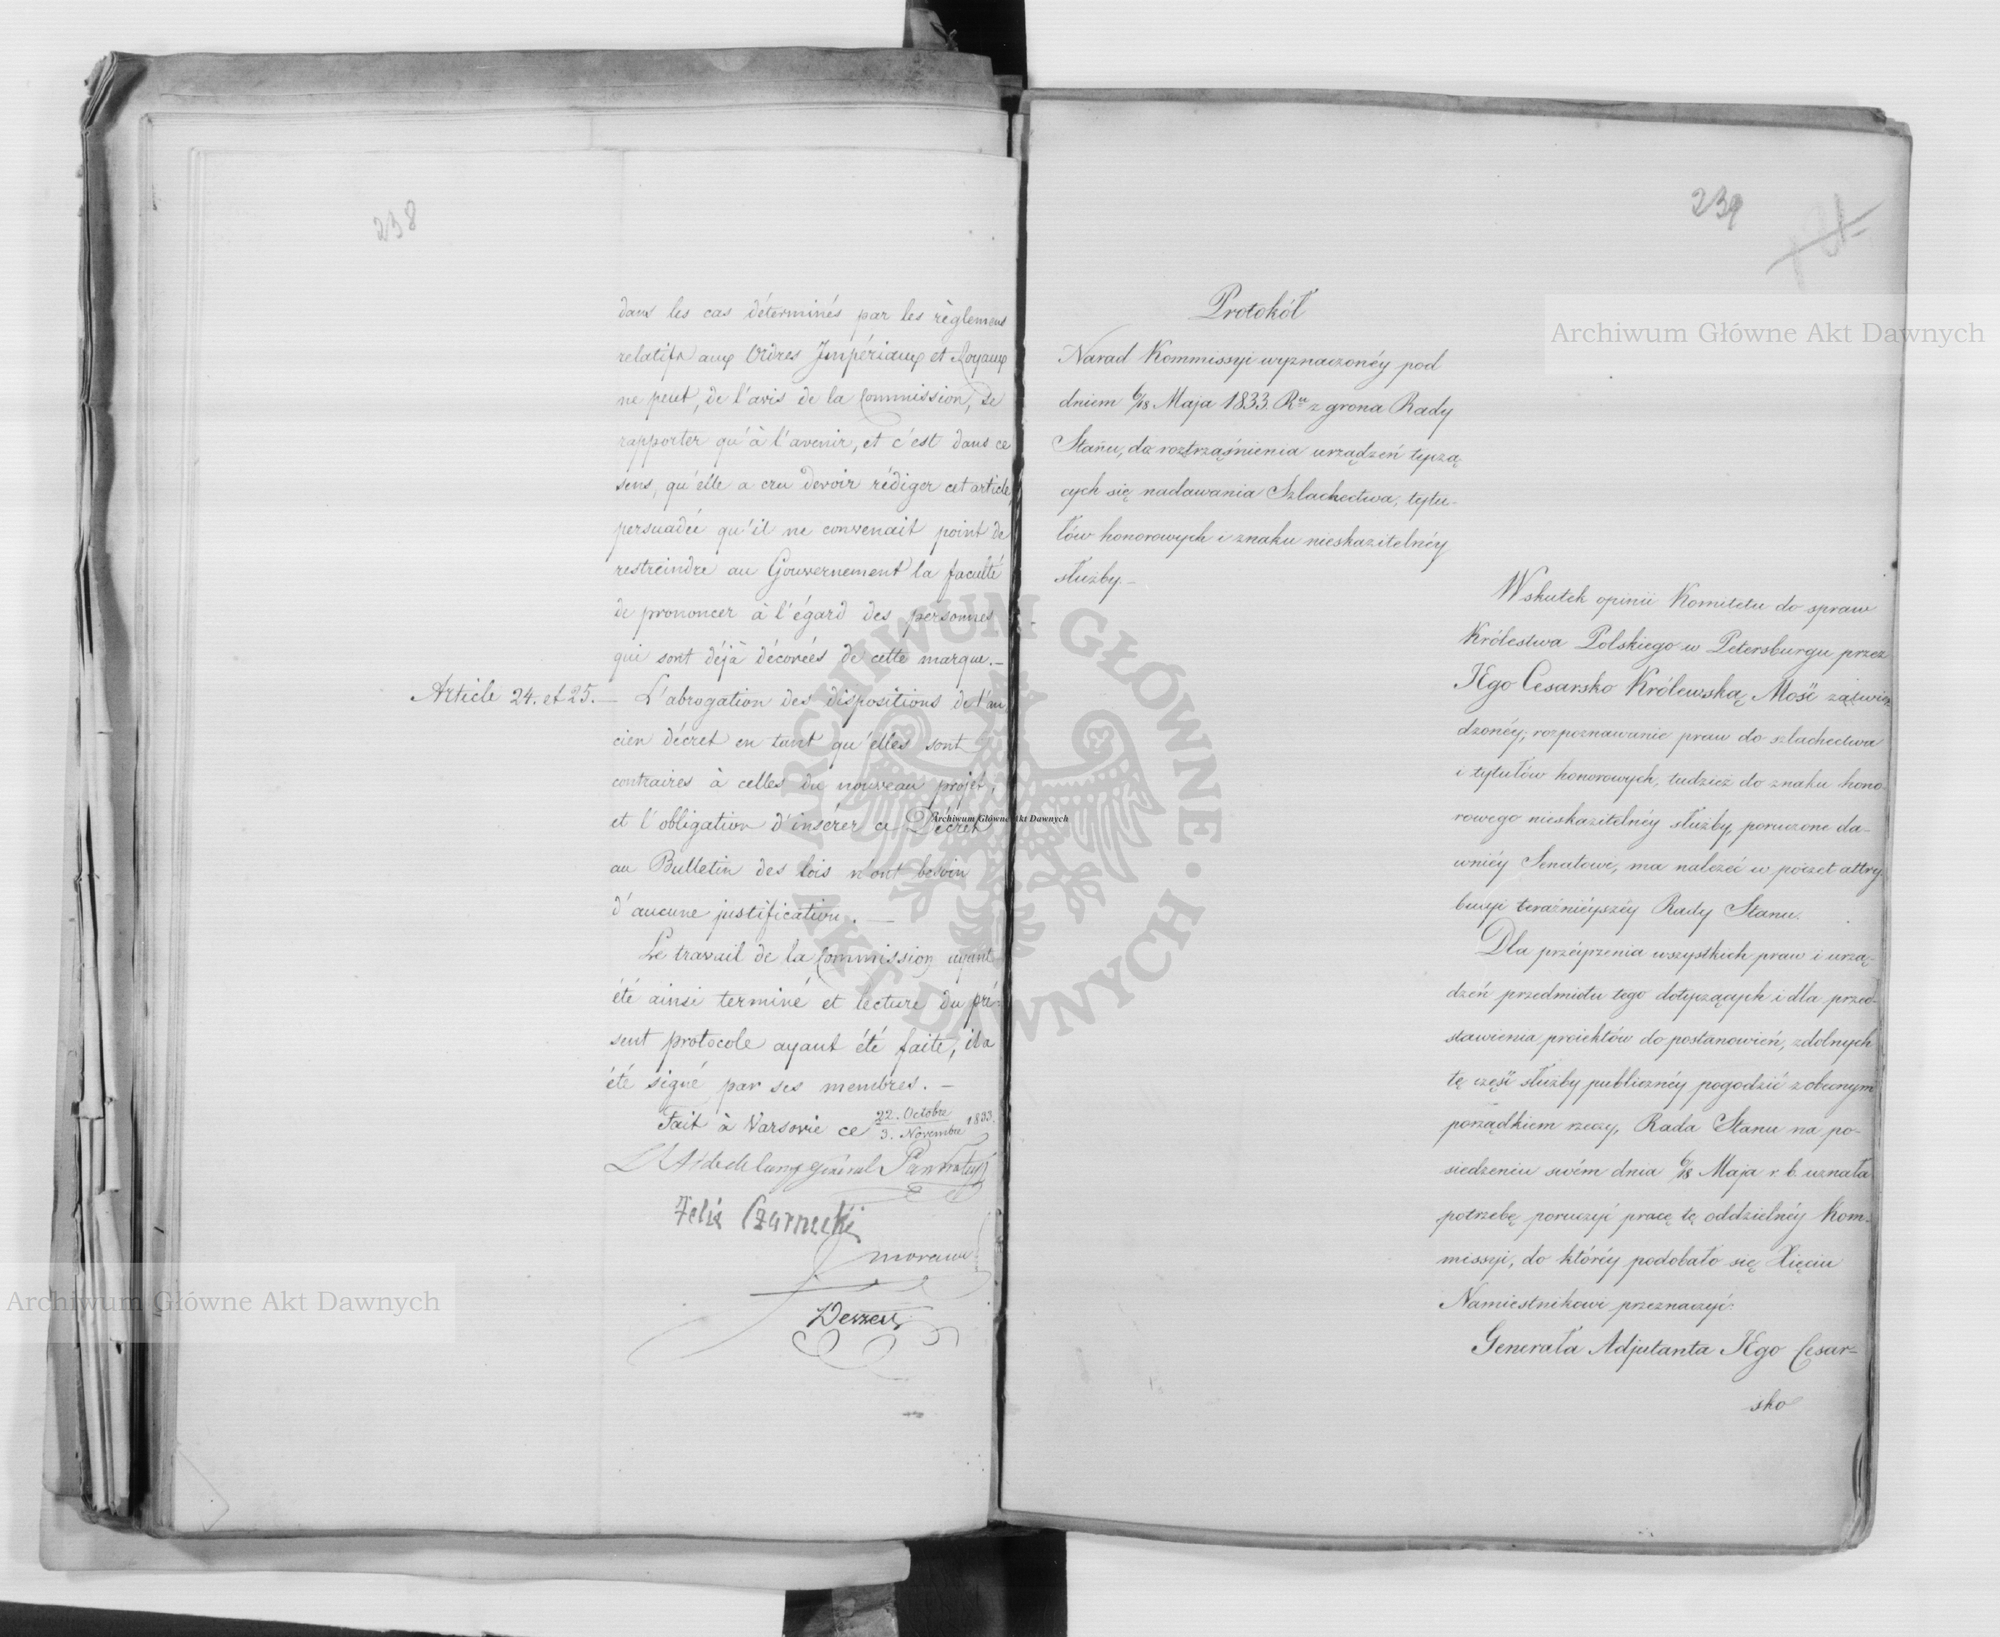 238
dans les cas déterminés par les règlemens
relatifs aux Ordres Impériaux et Royaux
ne peut, de l'avis de la Commission, se
rapporter qu'à l'avenir, et c'est dans ce
sens, qu'elle a cru devoir rédiger cet article,
persuadée qu'il ne convenait point de
restreindre au Gouvernement la faculté
de prononcer à l'égard des personnes
qui sont déjà décorées de cette marque.—
Article 24. et 25.— L'abrogation des dispositions de l'an
cien décret en tant qu'elles sont
contraires à celles du nouveau projet,
et l'obligation d'insérer ce Décret
au Bulletin des lois n'ont besoin
d'aucune justification.—
Le travail de la Commission ayant
été ainsi terminé et lecture du pré-
sent protocole ayant été faite, il a
été signé par ses membres.—
Fait à Varsovie ce 22. Octobre / 3. Novembre 1833.
L'Aide de Camp Général
Felix Czarnecki
239
Protokół
Narad Kommissyi wyznaczonéy pod
dniem 6/18 Maja 1833. Ru z grona Rady
Stanu, do roztrząśnienia urządzeń tyczą
cych się nadawania Szlachectwa, tytu-
łów honorowych i znaku nieskazitelnéy
służby.—
Wskutek opinii Komitetu do spraw
Królestwa Polskiego w Petersburgu przez
JEgo Cesarsko Królewską Mość zatwier
dzonéy, rozpoznawanie praw do szlachectwa
i tytułów honorowych, tudzież do znaku hono
rowego nieskazitelnéy służby, poruczone da-
wniéy Senatowi, ma należeć w poczet attry
bucyi teraźniéyszéy Rady Stanu.
Dla przéyrzenia wszystkich praw i urzą-
dzeń przedmiotu tego dotyczących i dla przed-
stawienia proiektów do postanowień, zdolnych
tę część służby publicznéy pogodzić z obecnym
porządkiem rzeczy, Rada Stanu na po-
siedzeniu swém dnia 6/18 Maja r. b. uznała
potrzebę poruczyć pracę tę oddzielnéy Kom-
missyi, do któréy podobało się Xięciu
Namiestnikowi przeznaczyć:
Generała Adjutanta JEgo Cesar-
sko
Archiwum Główne Akt Dawnych
Archiwum Główne Akt Dawnych
Archiwum Główne Akt Dawnych
ARCHIWUM GŁÓWNE AKT DAWNYCH